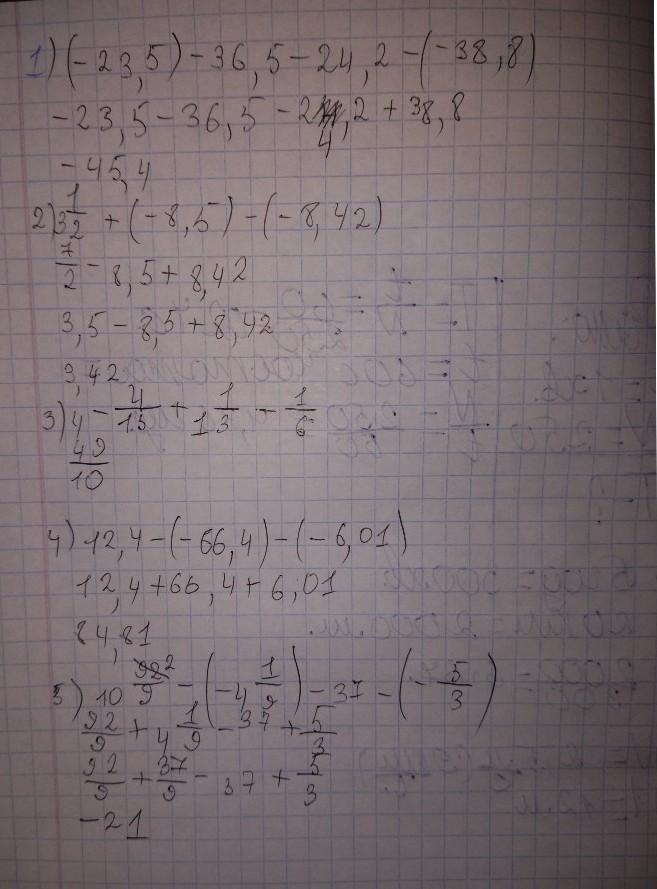 1) (-23,5)-36,5-24,2-(-38,8)
-23,5-36,5-24,2+38,8
-45,4
2) 3 1/2 + (-8,5) - (-8,42)
7/2 - 8,5 + 8,42
3,5 - 8,5 + 8,42
3,42
3) 4 - 4/15 + 1 1/3 - 1/6
49/10
4) 12,4-(-66,4)-(-6,01)
12,4+66,4+6,01
84,81
5) 10 2/9 - (-4 1/9) - 37 - (-5/3)
92/9 + 4 1/9 - 37 + 5/3
92/9 + 37/9 - 37 + 5/3
-21